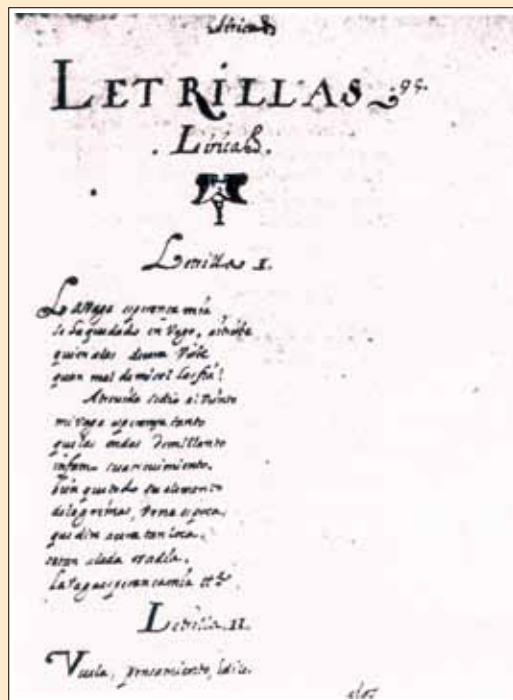 Liricas
LETRILLAS 95.
Liricas.
Letrilla I.
La Vaga esperanca mia
se ha quedado en Vago, ai triste
quien alas de cera Viste
quan mal de mi sol las fia!
Atrevida se dio al Viento
mi Vaga esperança tanto
que las ondas de mi llanto
infam su atrevimiento.
bien que todo en elemento
de lagrimas, Vrna es poca,
que dire a cera tan loca,
o a tan alada osadia.
La Vaga esperança mia etc
Letrilla. II.
Vuela, pensamiento, i dile.